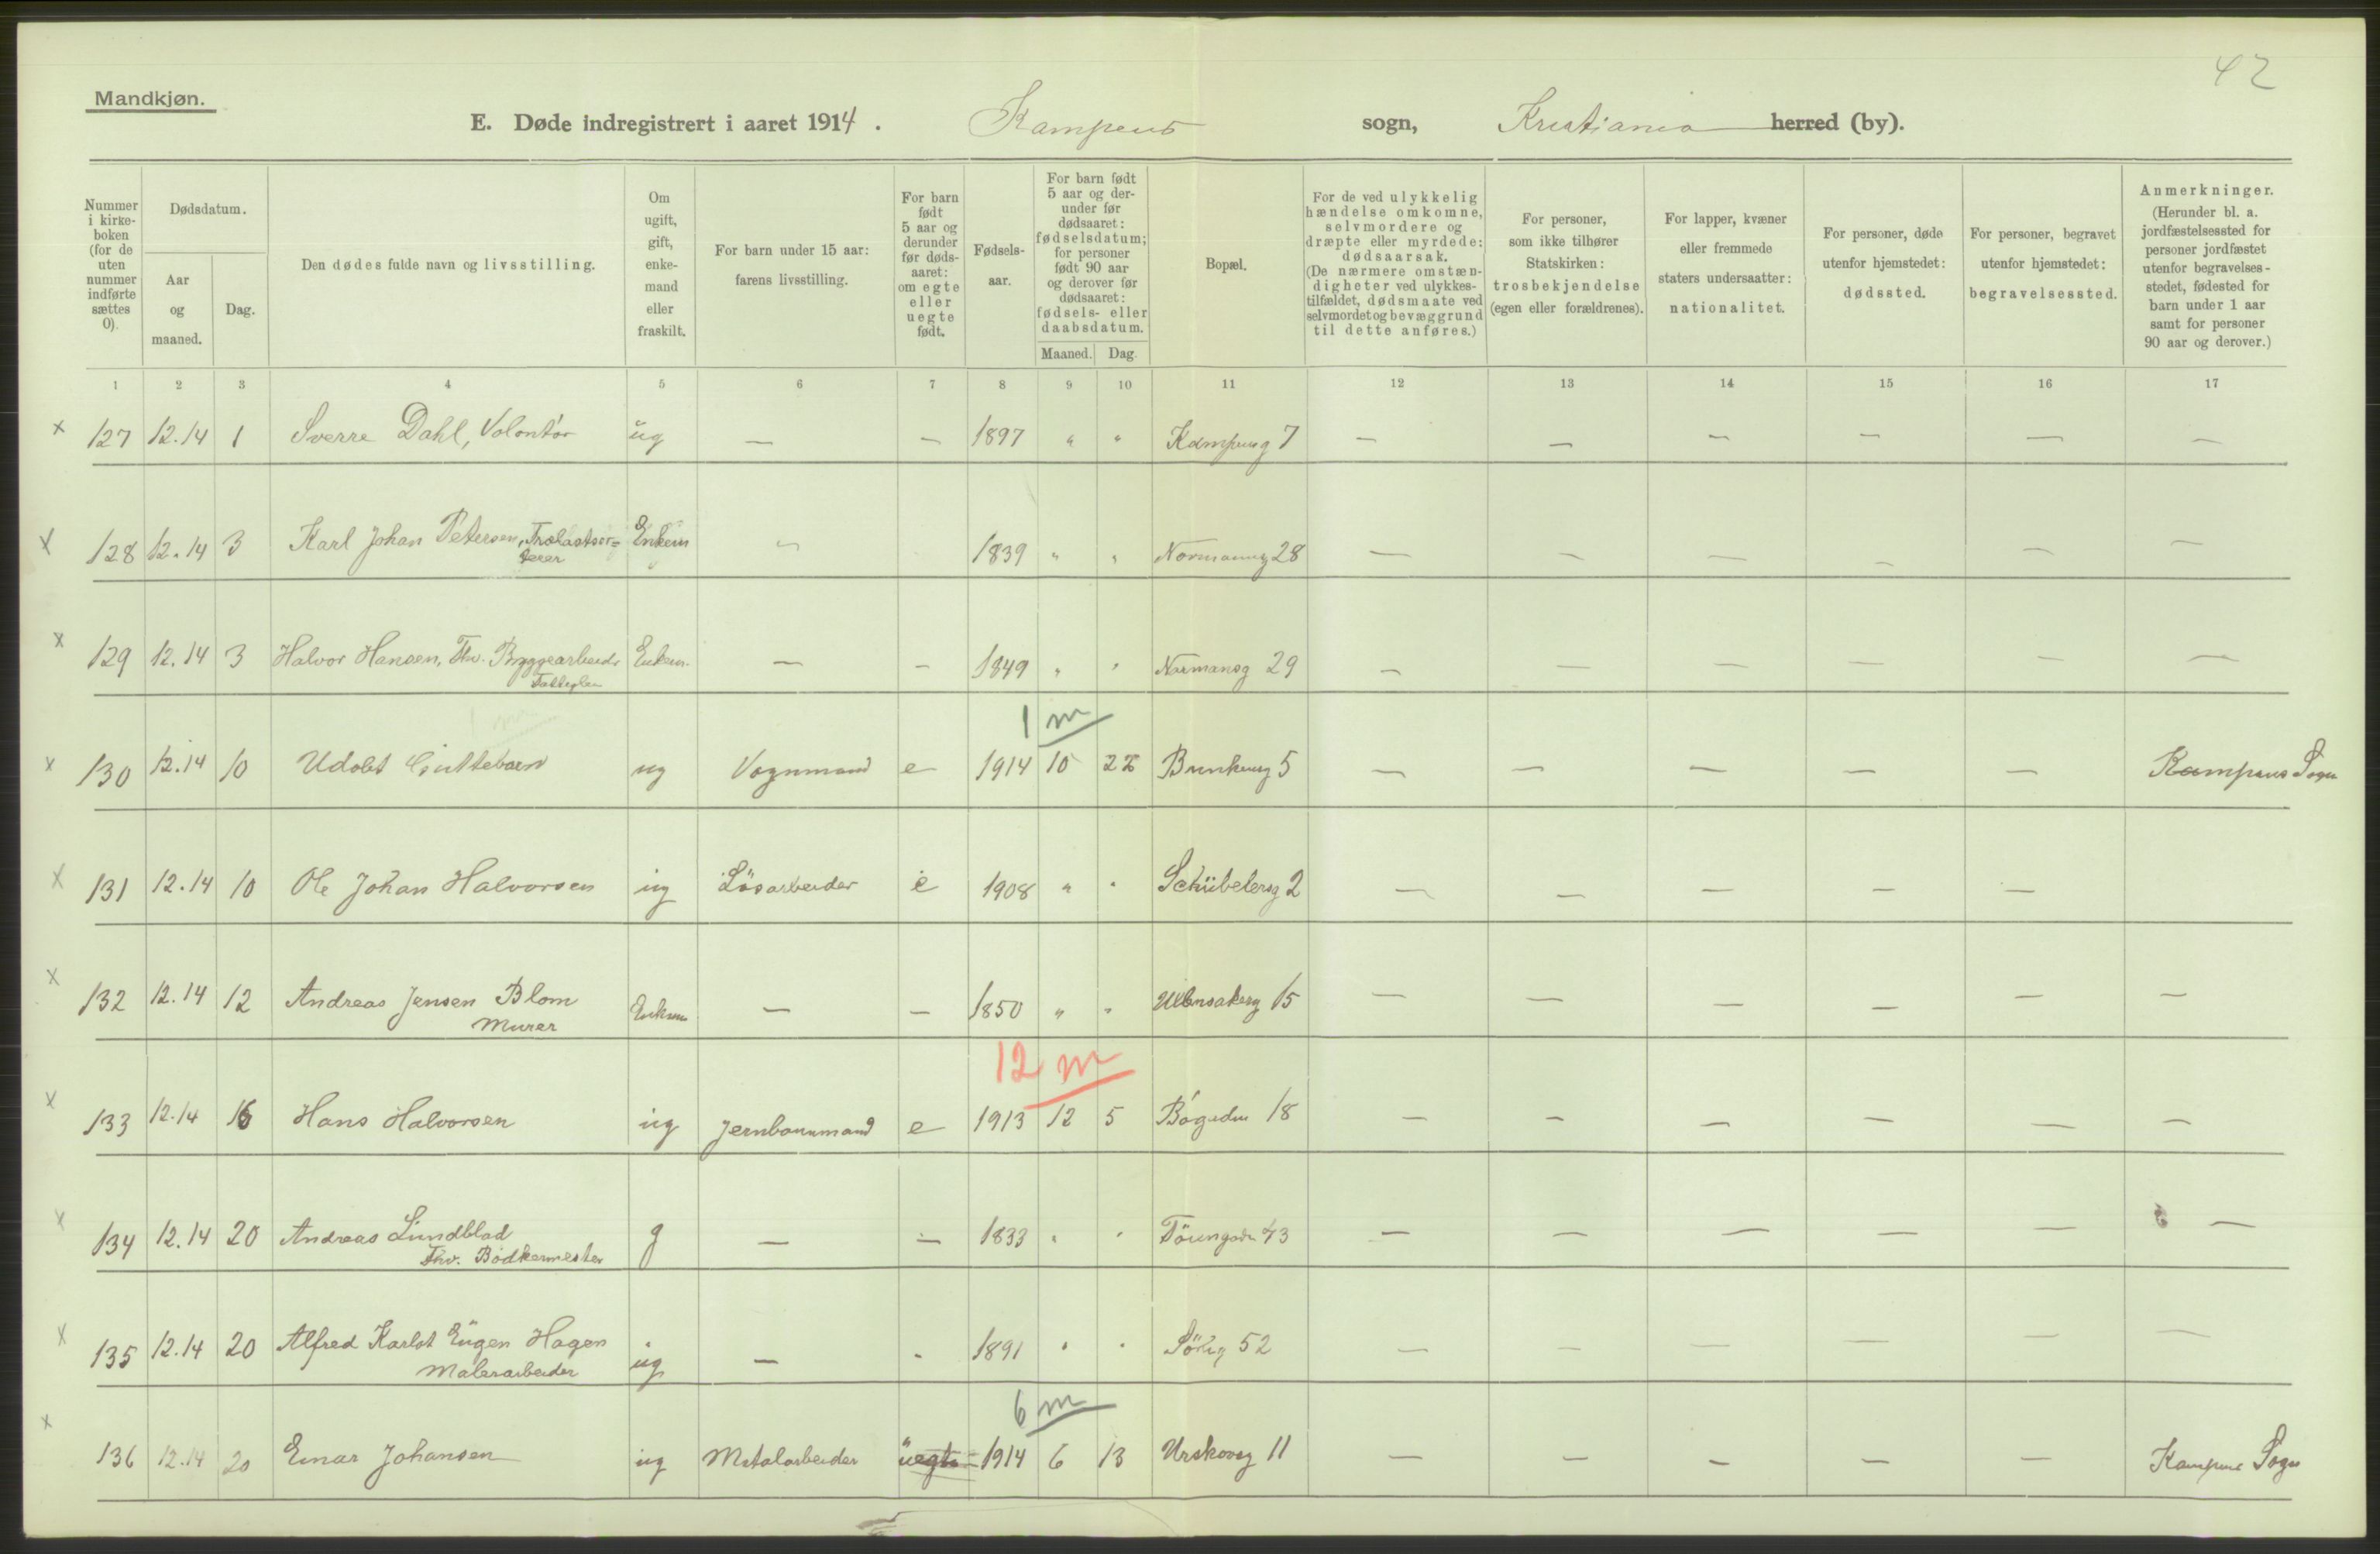 42
Mandkjøn.
E. Døde indregistrert i aaret 1914. Kampens sogn, Kristiania herred (by).
Nummer i kirkeboken (for de uten nummer indførte sættes 0).
Dødsdatum.
Aar og maaned.
Dag.
Den dødes fulde navn og livsstilling.
Om ugift, gift, enkemand eller fraskilt.
For barn under 15 aar: farens livsstilling.
For barn født 5 aar og derunder før dødsaaret: om egte eller uegte født.
Fødselsaar.
For barn født 5 aar og derunder før dødsaaret: fødselsdatum; for personer født 90 aar og derover før dødsaaret: fødsels- eller daabsdatum.
Maaned. Dag.
Bopæl.
For de ved ulykkelig hændelse omkomne, selvmordere og dræpte eller myrdede: dødsaarsak. (De nærmere omstændigheter ved ulykkestilfældet, dødsmaate ved selvmordet og bevæggrund til dette anføres.)
For personer, som ikke tilhører Statskirken: trosbekjendelse (egen eller forældrenes).
For lapper, kvæner eller fremmede staters undersaatter: nationalitet.
For personer, døde utenfor hjemstedet: dødssted.
For personer, begravet utenfor hjemstedet: begravelsessted.
Anmerkninger. (Herunder bl. a. jordfæstelsessted for personer jordfæstet utenfor begravelsesstedet, fødested for barn under 1 aar samt for personer 90 aar og derover.)
1 2 3 4 5 6 7 8 9 10 11 12 13 14 15 16 17
x 127 12.14 1 Sverre Dahl, Volontør ug — — 1897 " " Kampensg 7 — — — — — —
x 128 12.14 3 Karl Johan Petersen, Trælastsor= Enkem — 1839 " " Normannsg 28 — — — — — —
terer
x 129 12.14 3 Halvor Hansen, Fhv. Byggearbeider Enkem. — — 1849 " " Normansg 29 — — — — — —
1 m
x 130 12.14 10 Udøbt Guttebarn ug Vognmand e 1914 10 22 Brinkensg 5 — — — — — Kampens Sogn
x 131 12.14 10 Ole Johan Halvorsen ug Løsarbeider e 1908 " " Schübelersg 2 — — — — —
x 132 12.14 12 Andreas Jensen Blom Enkem — — 1850 " " Ullensakersg 15 — — — — — —
Murer
12 m
x 133 12.14 16 Hans Halvorsen ug Jernbanemand e 1913 12 5 Bøgaden 18 — — — — — —
x 134 12.14 20 Andreas Lundblad g — — 1833 " " Tøiengaden 43 — — — — — —
Fhv. Bødkermester
x 135 12.14 20 Alfred Karlot Eugen Hagen ug — - 1891 " " 52 — — — — — —
Malerarbeider
6 m
x 136 12.14 20 Einar Johansen ug Metalarbeider uegte 1914 6 13 Urskovsg 11 — — — — — Kampens Sogn